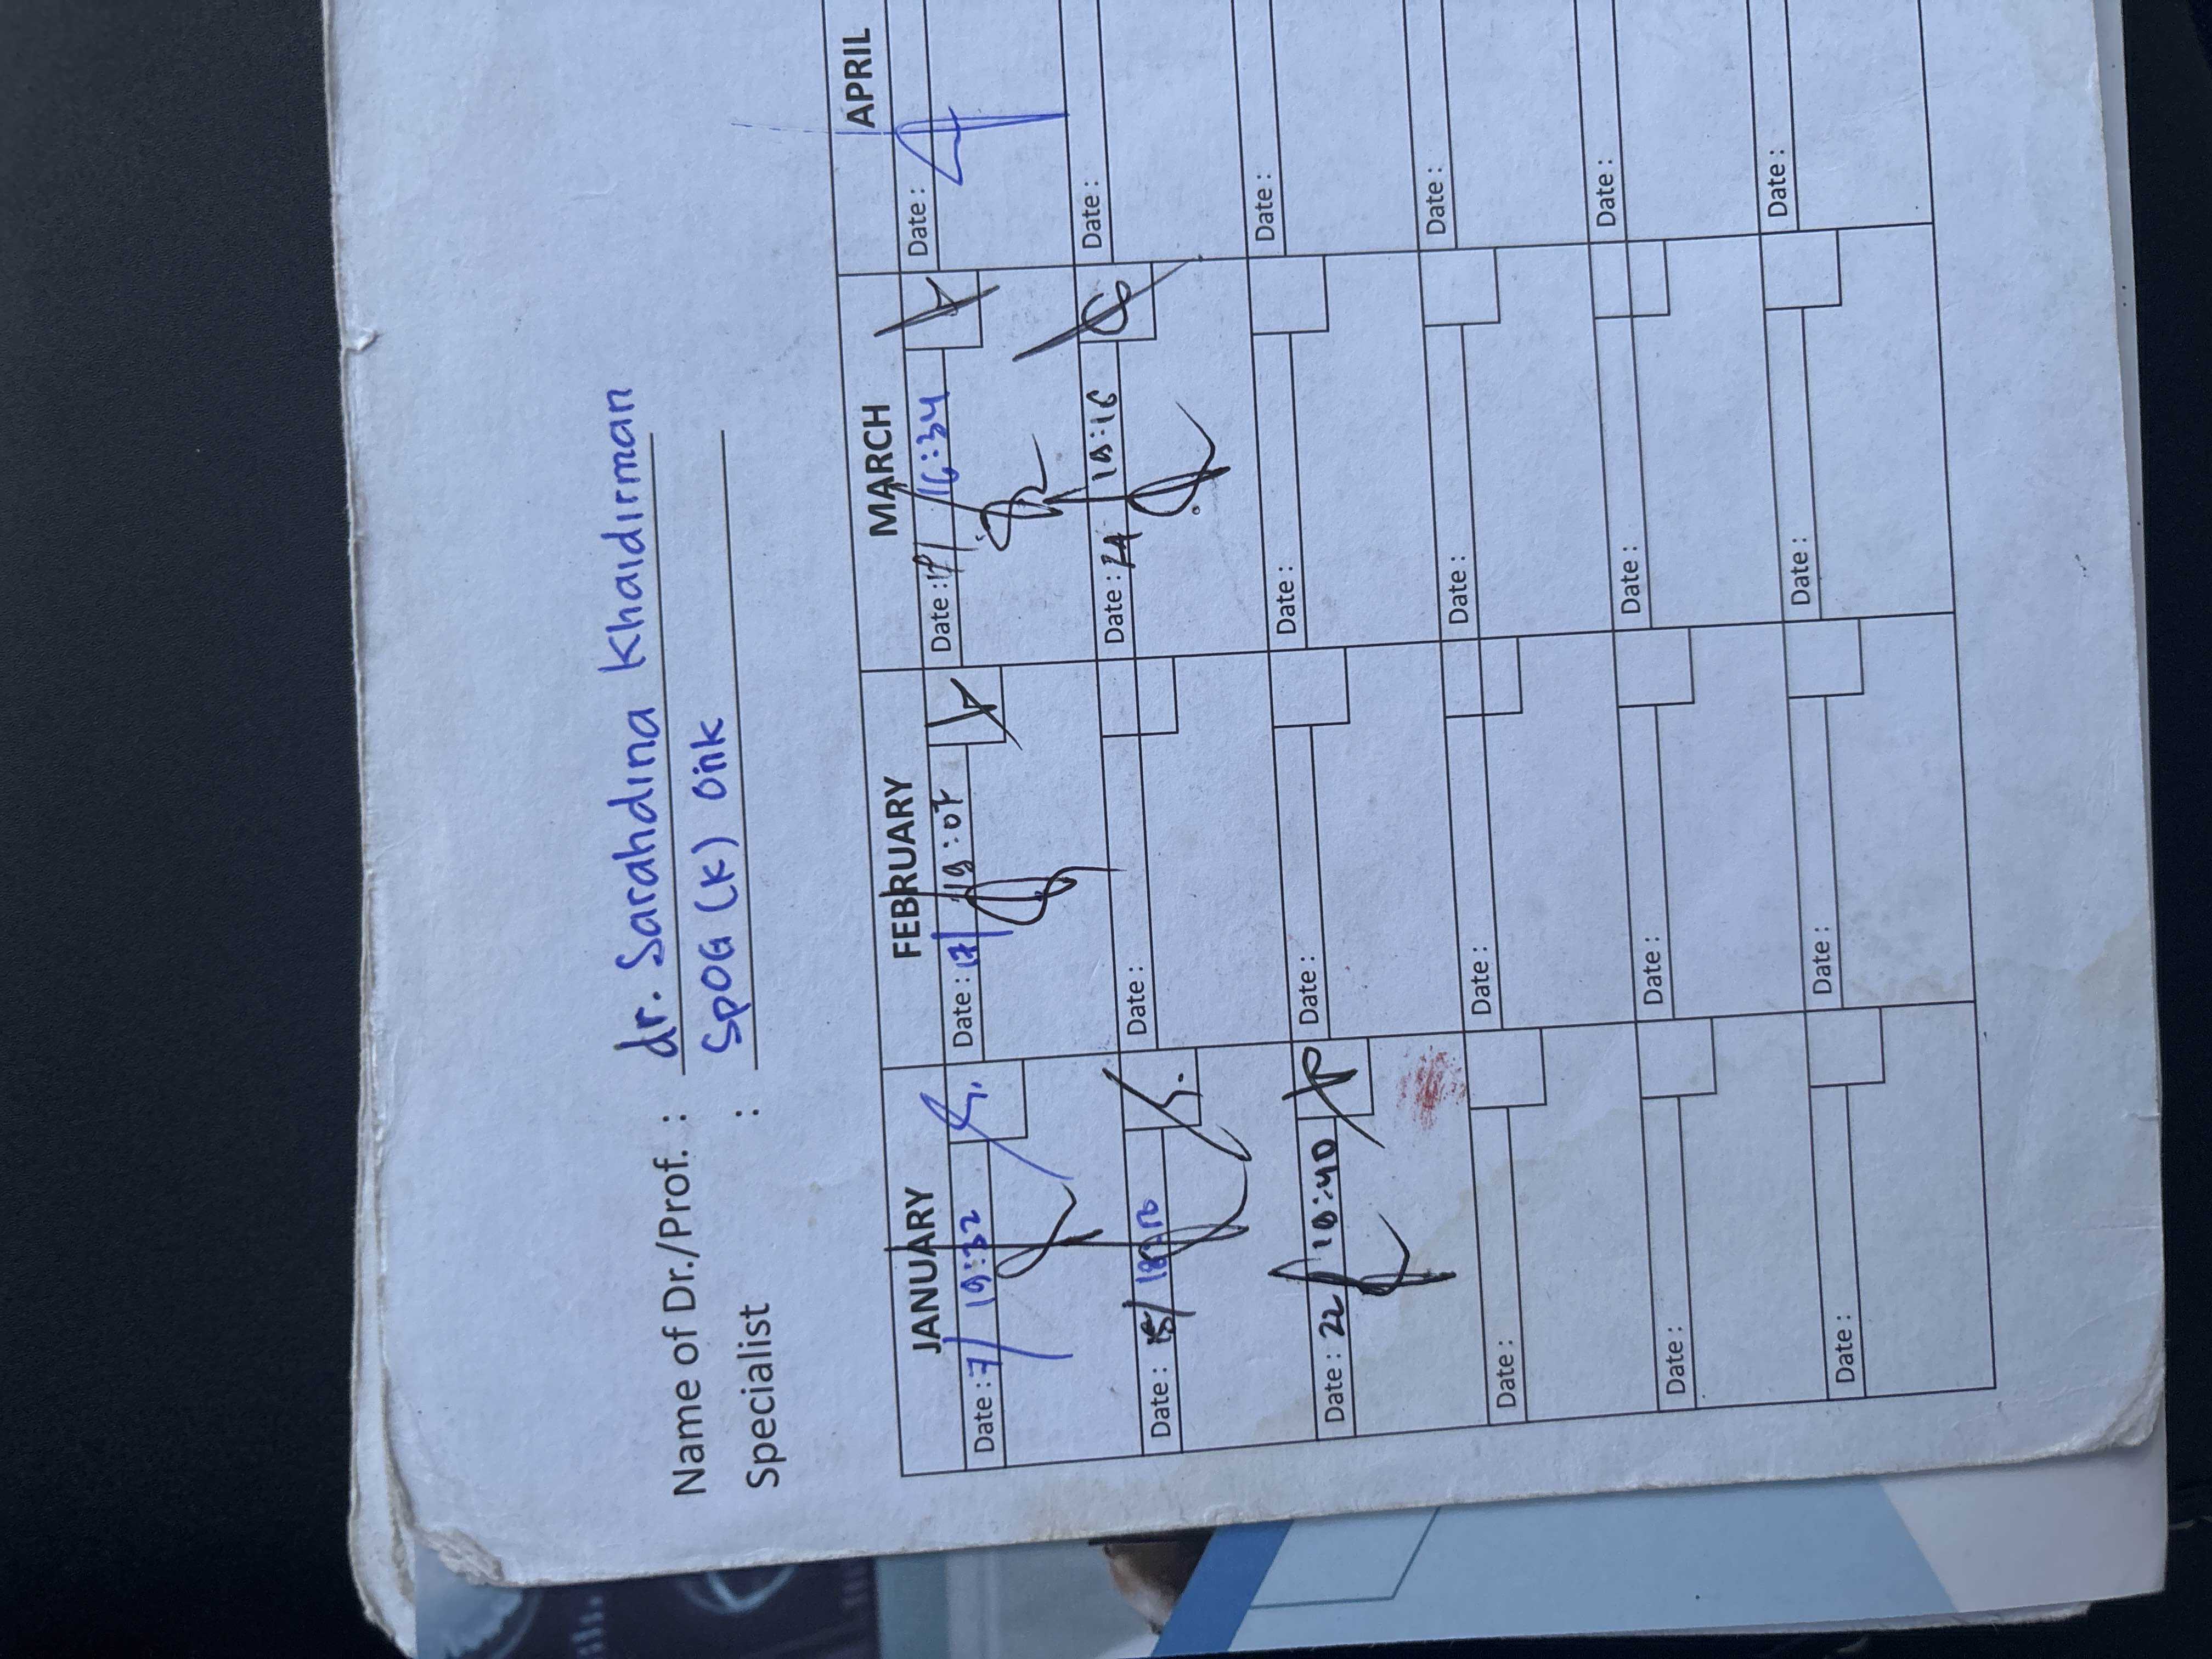 Name of Dr./Prof. : dr. Sarahdina Khaidirman
Specialist : SpOG (K) Oink
JANUARY FEBRUARY MARCH APRIL
Date : 7/ 19:32 Date : 17/ 19:07 Date : 16:34 Date :
Date : 15/ Date : Date : 24 18:16 Date :
Date : 22 18:40 Date : Date : Date :
Date : Date : Date : Date :
Date : Date : Date : Date :
Date : Date : Date : Date :